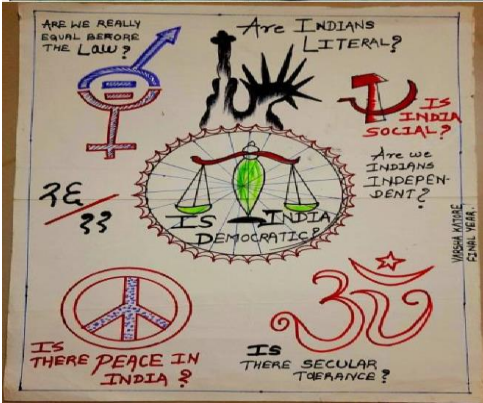 ARE WE REALLY
EQUAL BEFORE
THE LAW?
Are INDIANS
LITERAL?
IS
INDIA
SOCIAL?
Are we
INDIANS
INDEPEN-
DENT?
२६/११
IS INDIA
DEMOCRATIC?
VARSHA KATORE
FINAL YEAR.
IS
THERE PEACE IN
INDIA?
ॐ
IS
THERE SECULAR
TOERANCE?